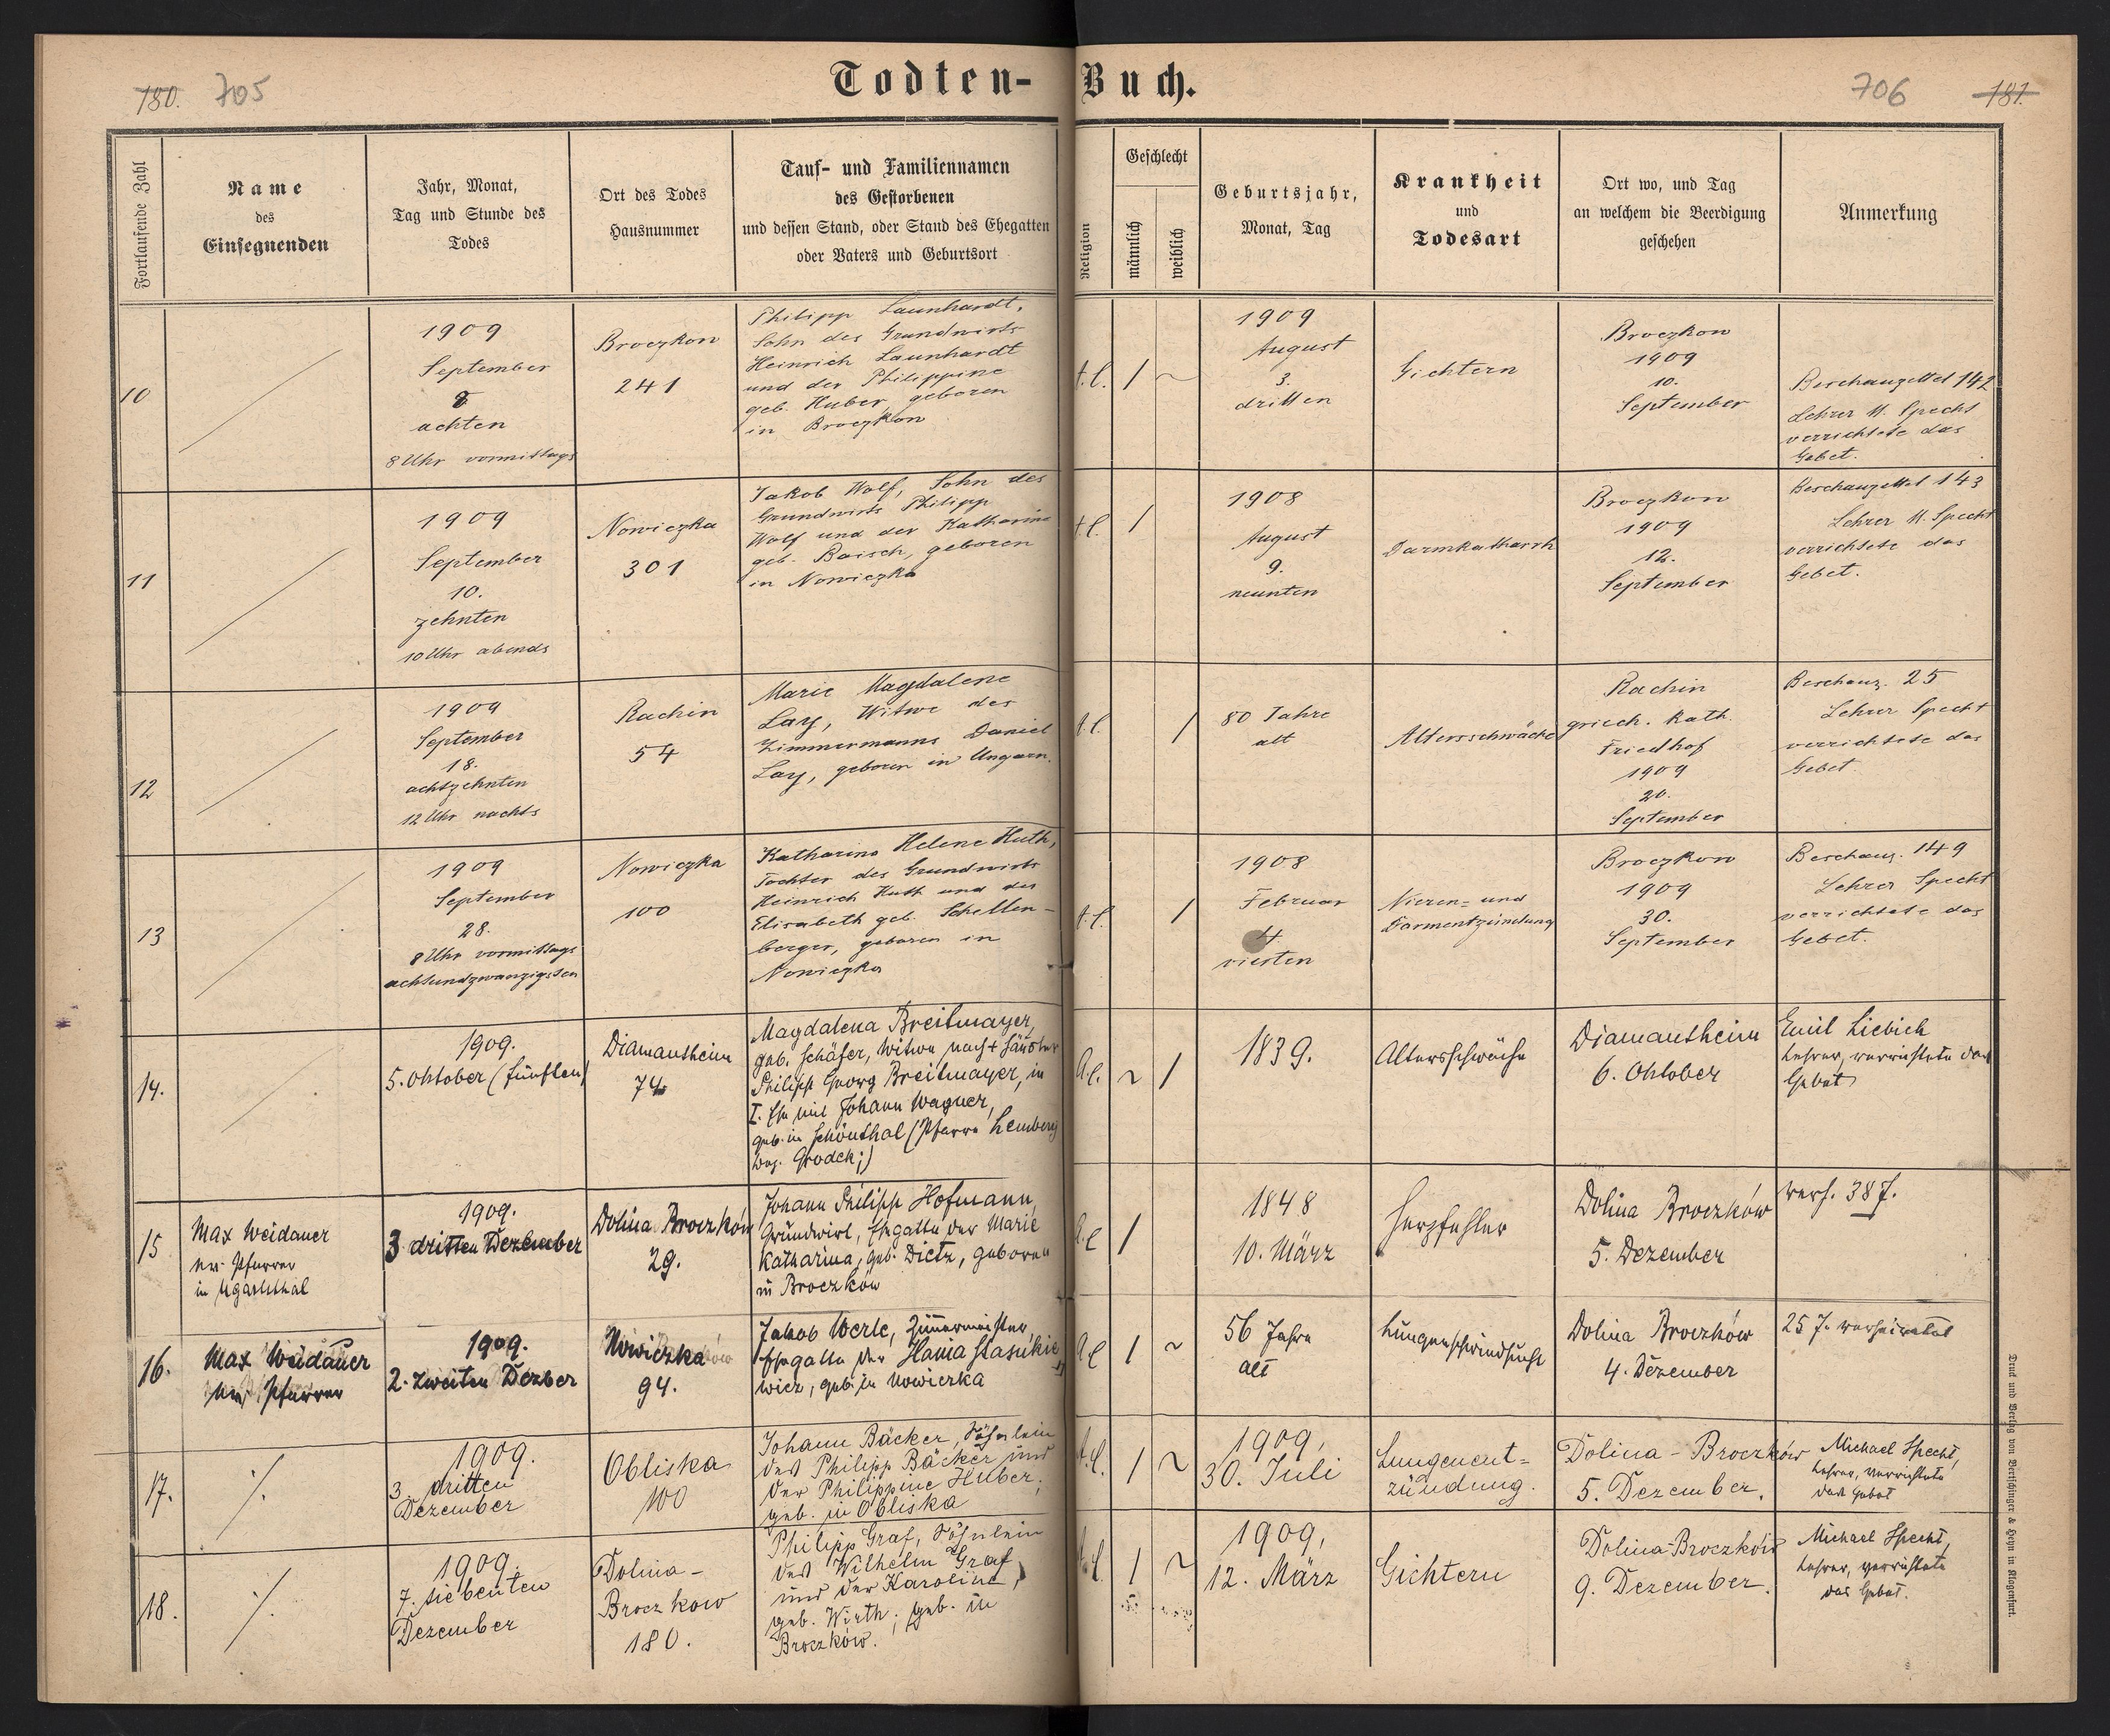 180. 705
Todten-Buch.
706 181.
Fortlaufende Zahl
Name
des
Einsegnenden
Jahr, Monat,
Tag und Stunde des
Todes
Ort des Todes
Hausnummer
Tauf- und Familiennamen
des Gestorbenen
und dessen Stand, oder Stand des Ehegatten
oder Vaters und Geburtsort
Religion
Geschlecht
männlich
weiblich
Geburtsjahr,
Monat, Tag
Krankheit
und
Todesart
Ort wo, und Tag
an welchem die Beerdigung
geschehen
Anmerkung
10
1909
September
8
achten
8 Uhr vormittags
Broczkow
241
Philipp Launhardt,
Sohn des Grundwirts
Heinrich Launhardt
und der Philippine
geb. Huber, geboren
in Broczkow
1
1909
August
3.
dritten
Gichtern
Broczkow
1909
10.
September
Beschauzettel 142
Lehrer M. Specht
verrichtete das
Gebet.
11
1909
September
10.
zehnten
10 Uhr abends
Nowiczka
301
Jakob Wolf, Sohn des
Grundwirts Philipp
Wolf und der Katharine
geb. Baisch, geboren
in Nowiczka
1
1908
August
9.
neunten
Darmkatharrh
Broczkow
1909
12.
September
Beschauzettel 143
Lehrer M. Specht
verrichtete das
Gebet.
12
1909
September
18.
achtzehnten
12 Uhr nachts
Rachin
54
Marie Magdalene
Lay, Witwe des
Zimmermanns Daniel
Lay, geboren in Ungarn.
1
80 Jahre
alt
Altersschwäche
Rachin
griech. Kath.
Friedhof
1909
20.
September
Beschauz. 25
Lehrer Specht
verrichtete das
Gebet.
13
1909
September
28.
8 Uhr vormittags
achtundzwanzigsten
Nowiczka
100
Katharina Helene Huth,
Tochter des Grundwirts
Heinrich Huth und der
Elisabeth geb. Schellen-
berger, geboren in
Nowiczka
1
1908
Februar
4
vierten
Nieren- und
Darmentzündung
Broczkow
1909
30.
September
Beschauz. 149
Lehrer Specht
verrichtete das
Gebet.
14.
1909.
5. Oktober (fünften)
Diamantheim
74
Magdalena Breitmayer,
geb. Schäfer, Witwe nach
Philipp Georg Breitmayer, in
I. Ehe mit Johann Wagner,
geb. in Schönthal (Pfarre Lemberg
Grodek;)
1
1839.
Altersschwäche
Diamantheim
6. Oktober
Emil Liebich
Lehrer, verrichtete das
Gebet
15
Max Weidauer
ev. Pfarrer
in Ugartsthal
1909.
3 dritten Dezember
Dolina Broczków
29.
Johann Philipp Hofmann
Grundwirt, Ehegatte der Marie
Katharina, geb. Dietz, geboren
in Broczkow
1
1848
10. März
Herzfehler
Dolina Broczków
5. Dezember
verh. 38 J.
16.
Max Weidauer
ev. Pfarrer
1909.
2. zweiten Dezber
Nowiczka
94.
Jakob Werle, Zimmermeister,
Ehegatte der Hania Stasukie-
wicz, geb. in Nowiczka
1
56 Jahre
alt
Lungenschwindsucht
Dolina Broczków
4. Dezember
25 J. verheiratet
17.
1909.
3. dritten
Dezember
Obliska
100
Johann Bäcker, Söhnlein
des Philipp Bäcker und
der Philippine Huber,
geb. in Obliska
1
1909,
30. Juli
Lungenent-
zündung.
Dolina-Broczków
5. Dezember.
Michael Specht,
Lehrer, verrichtete
das Gebet
18.
1909.
7. siebenten
Dezember
Dolina-
Broczkow
180.
Philipp Graf, Söhnlein
des Wilhelm Graf
und der Karoline,
geb. Wirth; geb. in
Broczków.
1
1909,
12. März
Gichtern
Dolina-Broczków
9. Dezember.
Michael Specht,
Lehrer, verrichtete
das Gebet.
Druck und Verlag von Bertschinger & Heyn in Klagenfurt.